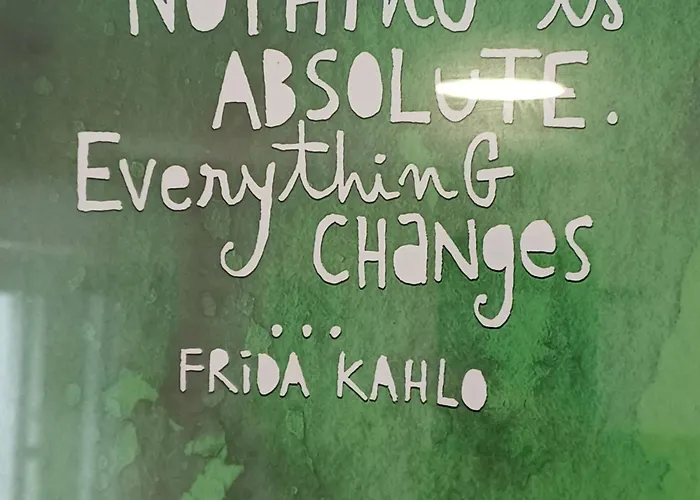 NOTHING is
ABSOLUTE.
EverythinG
CHaNges
...
FRiDA KAHLO